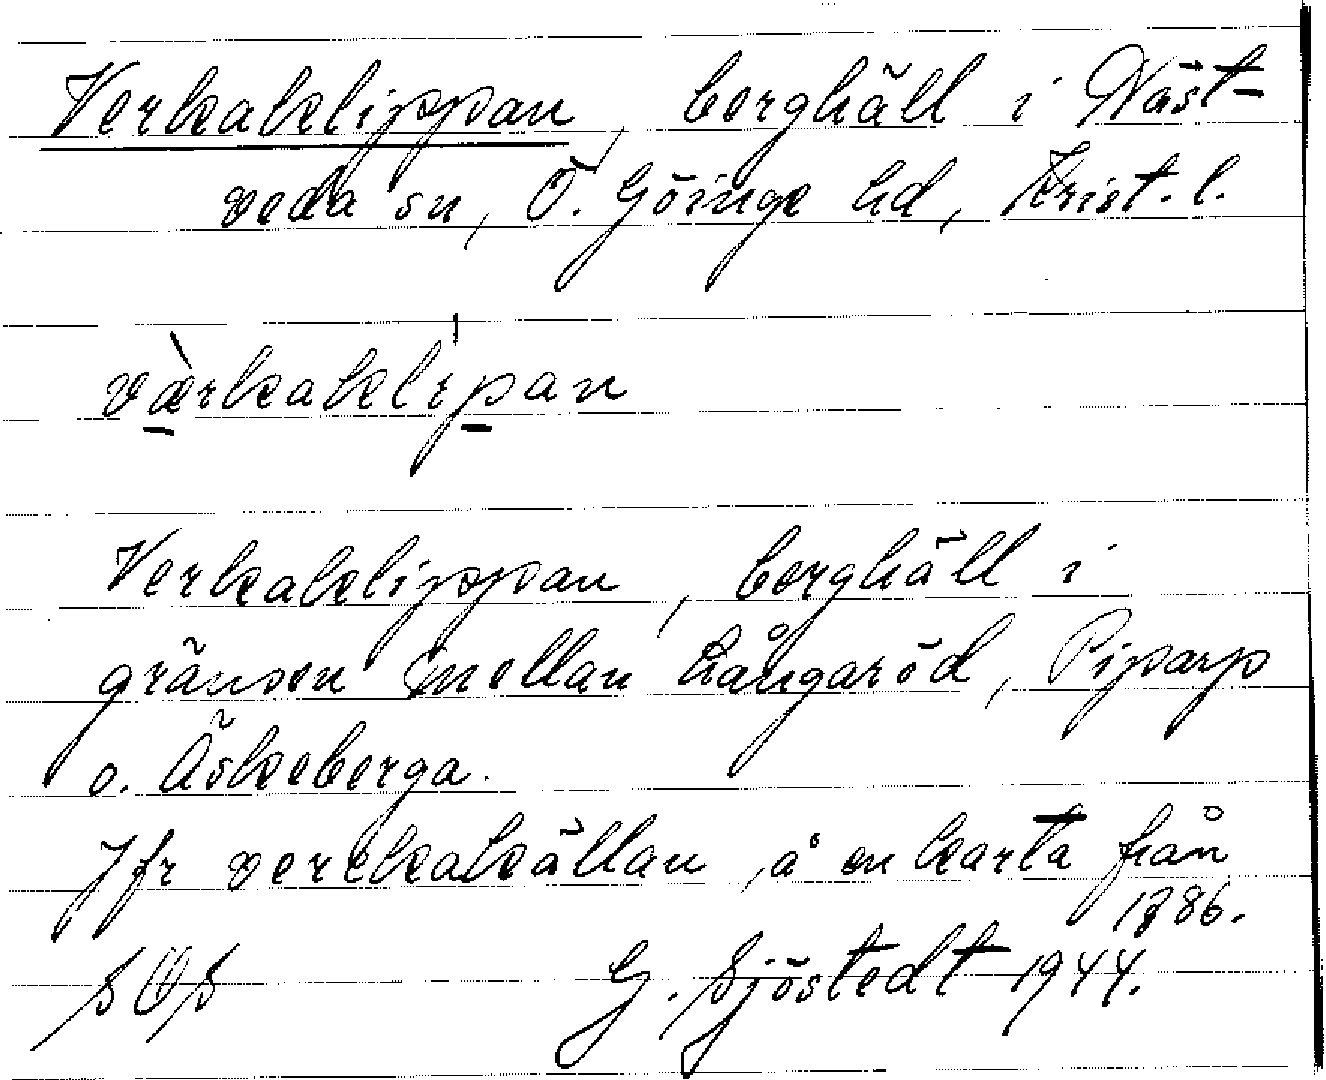 Verkaklippan, berghäll i Näst-
veda sn, Ö. Göinge hd, Krist. l.
værkaklipan
Verkaklippan, berghäll i
gränsen mellan Långaröd, Piparp
o. Äskeberga.
Jfr verckakällan, å en karta från
1786.
SOS G. Sjöstedt 1944.